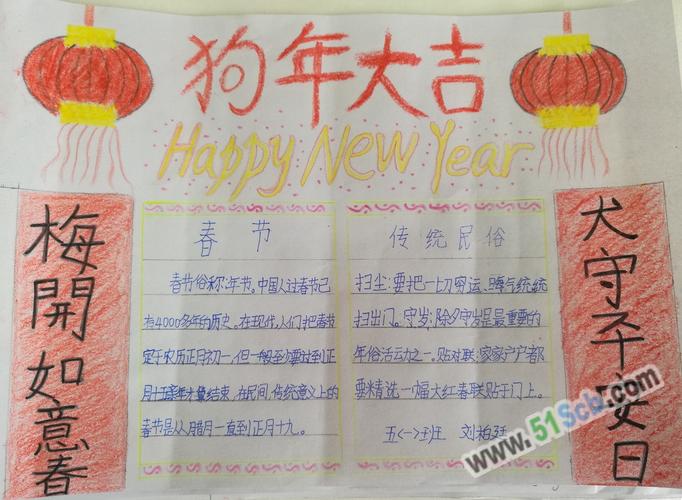 狗年大吉
Happy New Year
梅開如意春
春节
春节俗称:年节。中国人过春节已
有4000多年的历史。在现代,人们把春节
定于农历正月初一,但一般至少要过到正
月十五新年才算结束,在民间,传统意义上的
春节是从腊月一直到正月十九。
传统民俗
扫尘:要把一切穷运、晦气统统
扫出门。守岁:除夕守岁是最重要的
年俗活动之一。贴对联:家家户户都
要精选一幅大红春联贴于门上。
五<一>班 刘柏
犬守平安日
www.51Scb.com